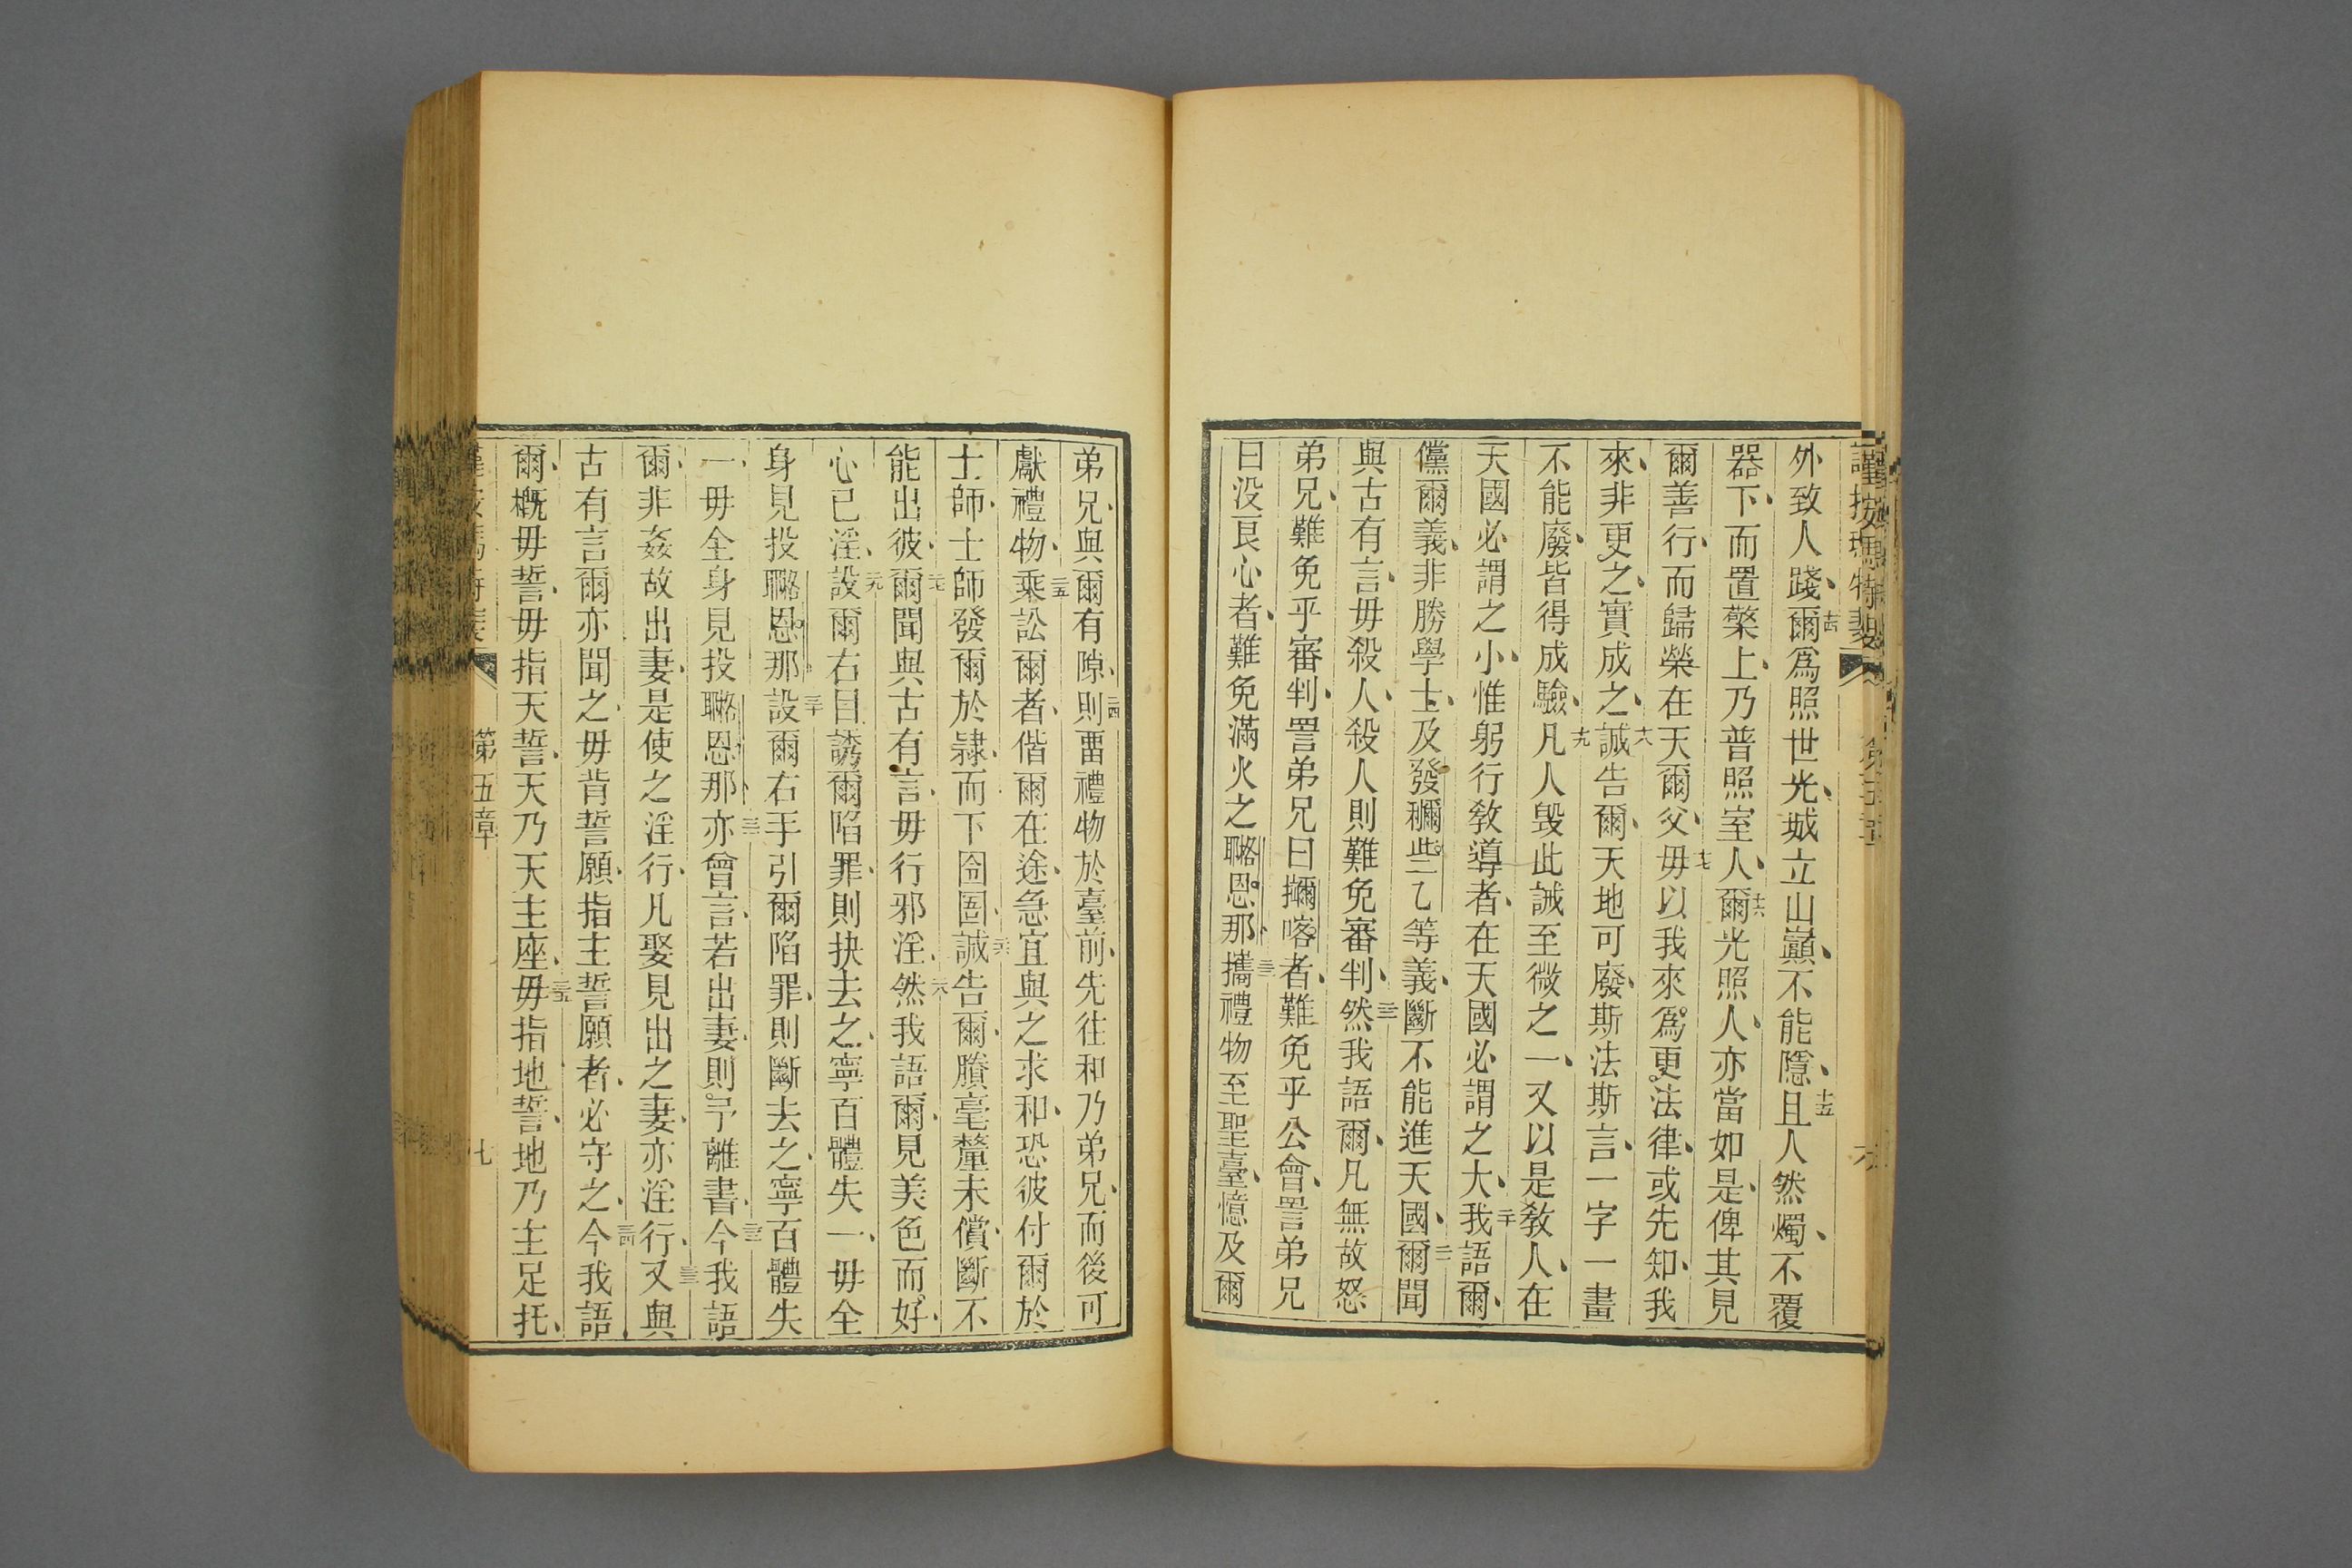 謹按瑪特斐 第五章 六
外致人踐、爾爲照世光、城立山巔、不能隱、且人然燭、不覆
器下、而置檠上、乃普照室人、爾光照人、亦當如是、俾其見
爾善行、而歸榮在天爾父、毋以我來爲更法律、或先知、我
來、非更之、實成之、誠告爾、天地可廢、斯法斯言、一字一畫
不能廢、皆得成驗、凡人毀此誡至微之一、又以是教人、在
天國必謂之小、惟躬行教導者、在天國必謂之大、我語爾、
儻爾義、非勝學士、及發穪些乙等義、斷不能進天國、爾聞
與古有言、毋殺人、殺人則難免審判、然我語爾、凡無故怒
弟兄、難免乎審判、詈弟兄曰擟喀者、難免乎公會、詈弟兄
曰没良心者、難免滿火之𦗖恩那、攜禮物至聖臺、憶及爾
弟兄、與爾有隙、則畱禮物於臺前、先往和乃弟兄、而後可
獻禮物、乘訟爾者、偕爾在途、急宜與之求和、恐彼付爾於
士師、士師發爾於隷、而下囹圄、誠告爾、賸毫釐未償、斷不
能出彼、爾聞與古有言、毋行邪淫、然我語爾、見美色而好、
心已淫、設爾右目、誘爾陷罪、則抉去之、寧百體失一、毋全
身見投𦗖恩那、設爾右手引爾陷罪、則斷去之、寧百體失
一、毋全身見投𦗖恩那、亦曾言、若出妻、則予離書、今我語
爾、非姦故出妻、是使之淫行、凡娶見出之妻、亦淫行、又與
古有言、爾亦聞之、毋背誓願、指主誓願者、必守之、今我語
爾、概毋誓、毋指天誓、天乃天主座、毋指地誓、地乃主足托、
第五章 七